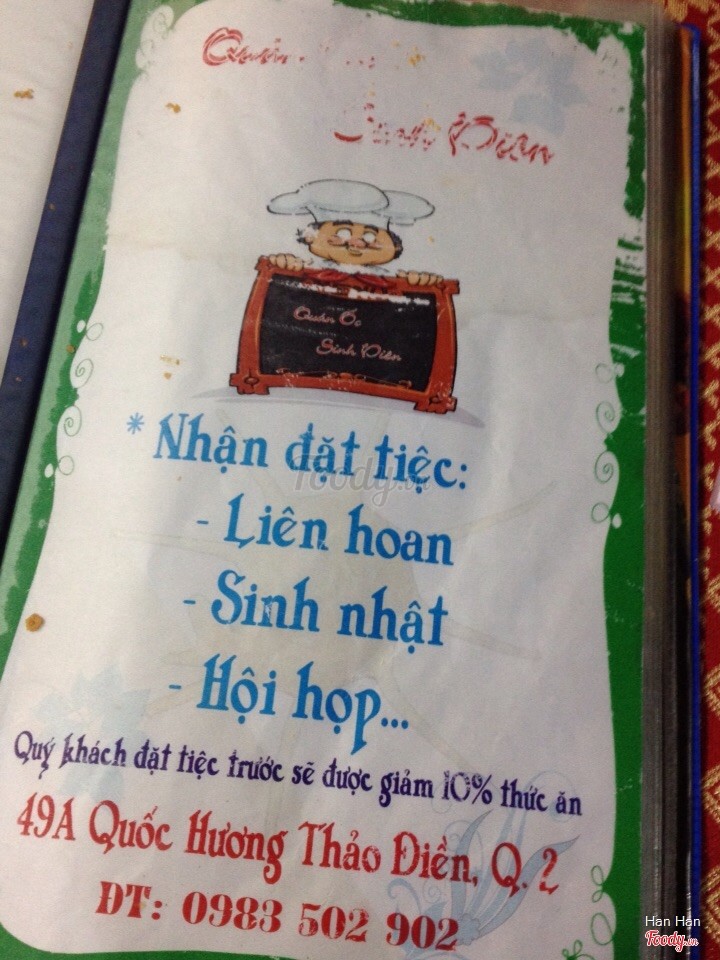 Quán
Sinh Viên
Quán Ốc
Sinh Viên
* Nhận đặt tiệc:
Foody.vn
- Liên hoan
- Sinh nhật
- Hội họp...
Quý khách đặt tiệc trước sẽ được giảm 10% thức ăn
49A Quốc Hương Thảo Điền, Q. 2
ĐT: 0983 502 902
Han Han
Foody.vn